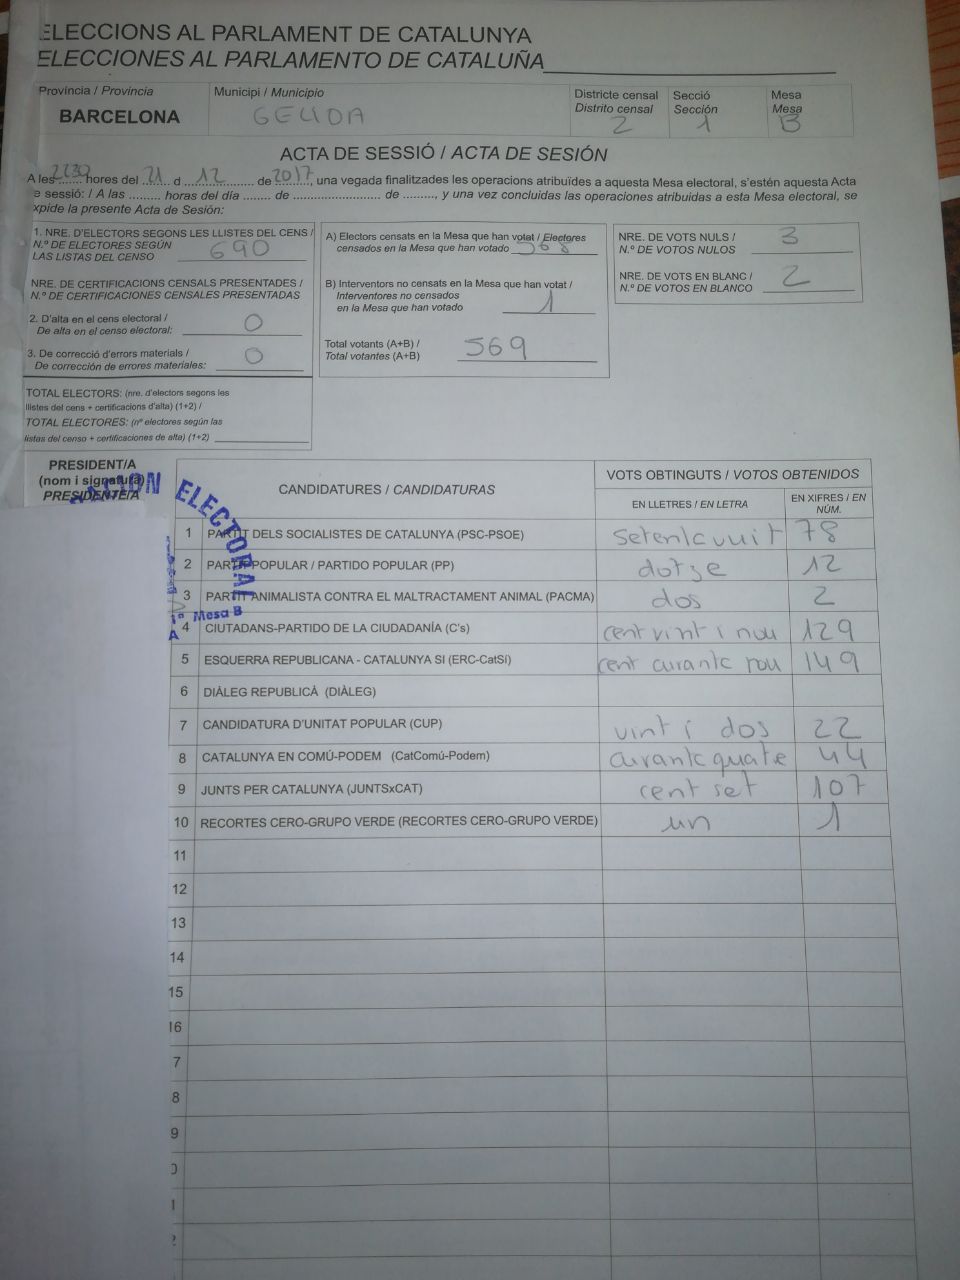 ELECCIONS AL PARLAMENT DE CATALUNYA
ELECCIONES AL PARLAMENTO DE CATALUÑA
Província / Provincia
BARCELONA
Municipi / Municipio
GELIDA
Districte censal
Distrito censal
2
Secció
Sección
1
Mesa
Mesa
B
ACTA DE SESSIÓ / ACTA DE SESIÓN
A les 2230 hores del 21 d 12 de 2017, una vegada finalitzades les operacions atribuïdes a aquesta Mesa electoral, s'estén aquesta Acta
e sessió: / A las ......... horas del día ....... de ........................ de ........., y una vez concluidas las operaciones atribuidas a esta Mesa electoral, se
xpide la presente Acta de Sesión:
1. NRE. D'ELECTORS SEGONS LES LLISTES DEL CENS /
N.º DE ELECTORES SEGÚN
LAS LISTAS DEL CENSO 690
NRE. DE CERTIFICACIONS CENSALS PRESENTADES /
N.º DE CERTIFICACIONES CENSALES PRESENTADAS
2. D'alta en el cens electoral /
De alta en el censo electoral: 0
3. De correcció d'errors materials /
De corrección de errores materiales: 0
TOTAL ELECTORS: (nre. d'electors segons les
llistes del cens + certificacions d'alta) (1+2) /
TOTAL ELECTORES: (nº electores según las
listas del censo + certificaciones de alta) (1+2)
A) Electors censats en la Mesa que han votat / Electores
censados en la Mesa que han votado 568
B) Interventors no censats en la Mesa que han votat /
Interventores no censados
en la Mesa que han votado 1
Total votants (A+B) /
Total votantes (A+B) 569
NRE. DE VOTS NULS /
N.º DE VOTOS NULOS 3
NRE. DE VOTS EN BLANC /
N.º DE VOTOS EN BLANCO 2
PRESIDENT/A
(nom i signatura)
PRESIDENTE/A
ELECTORAL
Mesa B
CANDIDATURES / CANDIDATURAS
VOTS OBTINGUTS / VOTOS OBTENIDOS
EN LLETRES / EN LETRA
EN XIFRES / EN
NÚM.
1 PARTIT DELS SOCIALISTES DE CATALUNYA (PSC-PSOE) setentavuit 78
2 PARTIT POPULAR / PARTIDO POPULAR (PP) dotze 12
3 PARTIT ANIMALISTA CONTRA EL MALTRACTAMENT ANIMAL (PACMA) dos 2
4 CIUTADANS-PARTIDO DE LA CIUDADANÍA (C's) cent vint i nou 129
5 ESQUERRA REPUBLICANA - CATALUNYA SI (ERC-CatSí) cent curanta nou 149
6 DIÀLEG REPUBLICÀ (DIÀLEG)
7 CANDIDATURA D'UNITAT POPULAR (CUP) vint i dos 22
8 CATALUNYA EN COMÚ-PODEM (CatComú-Podem) curanta quatre 44
9 JUNTS PER CATALUNYA (JUNTSxCAT) cent set 107
10 RECORTES CERO-GRUPO VERDE (RECORTES CERO-GRUPO VERDE) un 1
11
12
13
14
15
16
7
8
9
0
1
2